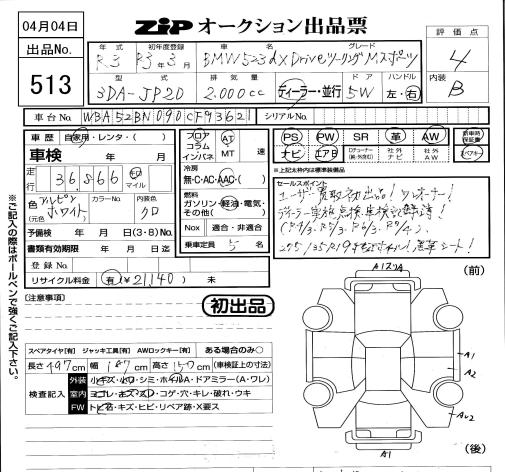 04月04日
ZIP オークション出品票
出品No.
513
年式 初年度登録 車名 グレード
R3 R3年3月 BMW523d XDriveツーリング Mスポーツ
型式 排気量 ドア ハンドル
3DA-JP20 2.000cc ディーラー・並行 5W 左・右
評価点
4
内装
B
車台No. WBA52BN090CF93621 シリアルNo.
車歴 自家用・レンタ・( )
車検 年 月
走行 36,866 km マイル
色 アルピンホワイト カラーNo. 内装色 クロ
(元色 )
予備検 年 月 日 (3・8)No.
書類有効期限 年 月 日迄
登録No.
リサイクル料金 有(¥21,140) 未
フロア コラム インパネ AT MT 速
冷房
無・C・AC・AAC・( )
燃料
ガソリン・軽油・電気・その他( )
Nox 適合・非適合
乗車定員 5 名
PS PW SR 革 AW 新車時保証書
ナビ エアB 社外ナビ 社外AW
※上記太枠内は標準装備品
セールスポイント
ユーザー買取初出品! ワンオーナー!
ディーラー実施点検、車検記録簿済!
275/35R19
(注意事項)
初出品
スペアタイヤ[有] ジャッキ工具[有] AWロックキー[有] ある場合のみ○
長さ497cm 幅187cm 高さ150cm (車検証上の寸法)
検査記入
外装 小キズ・小凹・シミ・ホイルA・ドアミラー(A・ワレ)
室内 ヨゴレ・ホスス・コゲ・穴・キレ・破れ・ウキ
FW トビ石・キズ・ヒビ・リペア跡・X要ス
(前)
A1
A2
AW2
A1
(後)
※ご記入の際はボールペンで強くご記入下さい。